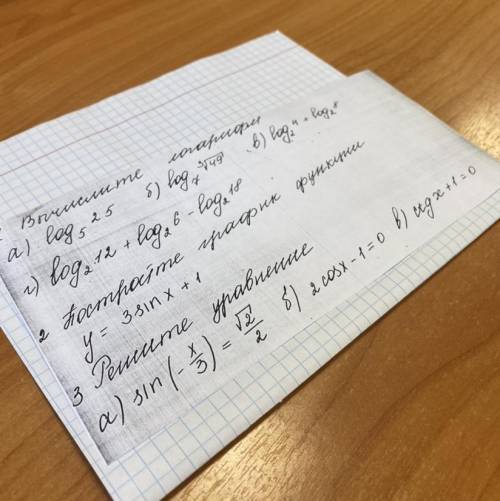 Вычислите логарифм
а) log₅25 б) log₇∛49 в) log₂⁴ + log₂⁸
г) log₂12 + log₂6 - log₂18
2 Постройте график функции
y = 3 sin x + 1
3 Решите уравнение
а) sin(-x/3) = √2/2 б) 2 cos x - 1 = 0 в) ctg x + 1 = 0